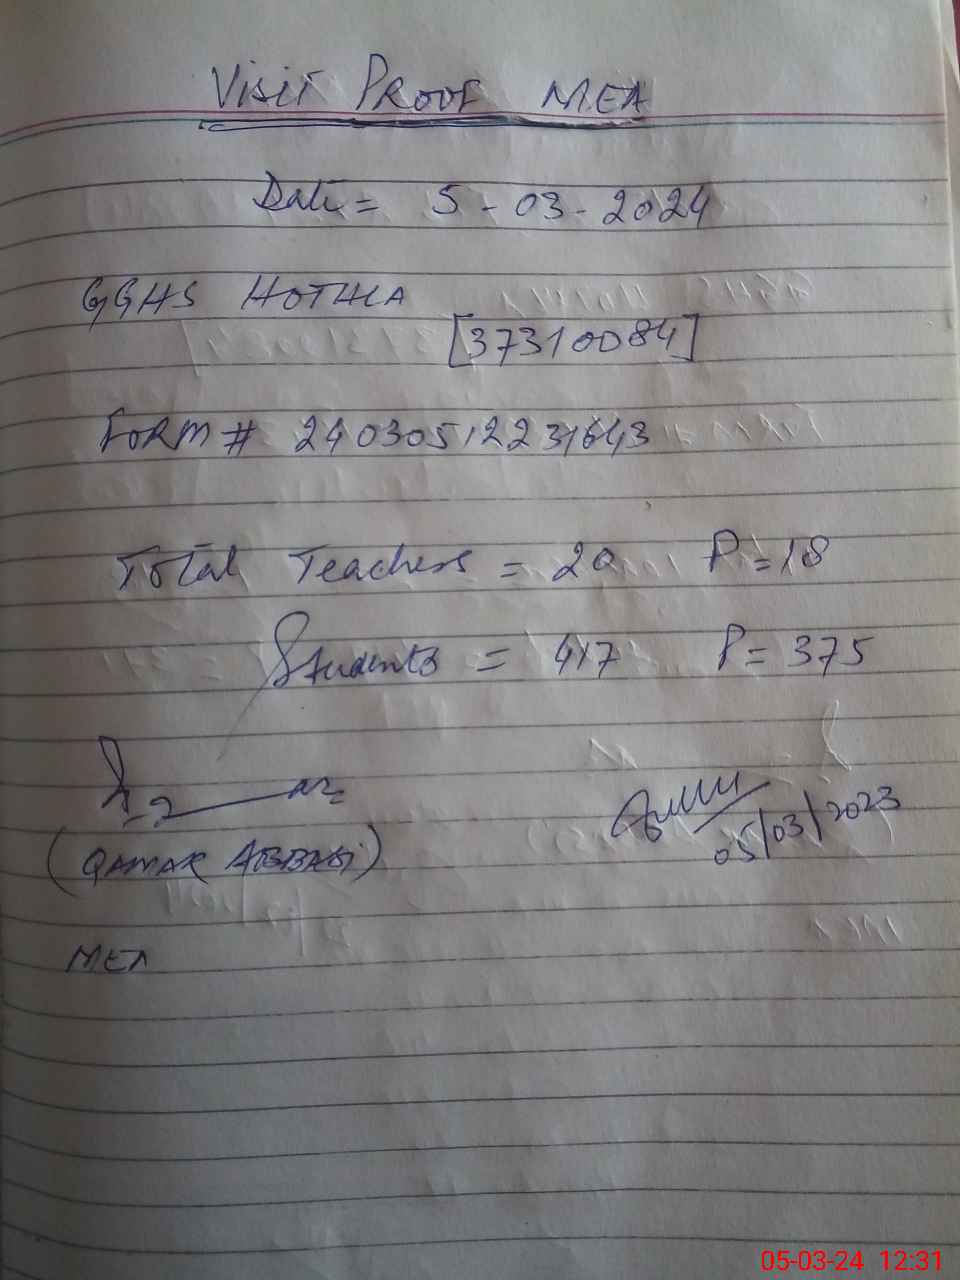 Visit Proof MEA
Date = 5-03-2024
GGHS HOTHLA
[37310084]
FORM # 240305122231643
Total Teachers = 20 P=18
Students = 417 P=375
05/03/2023
(QAMAR ABBASI)
MEA
05-03-24 12:31